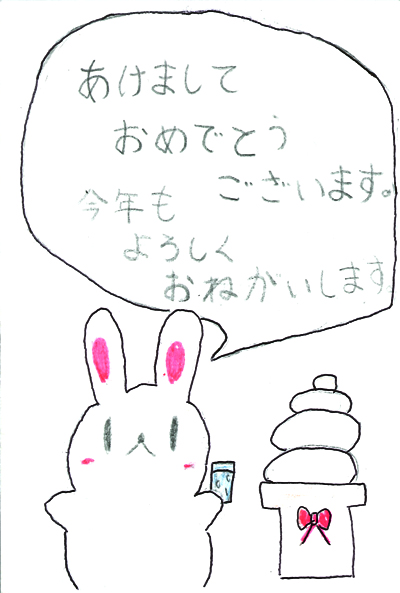 あけまして
おめでとう
ございます。
今年も
よろしく
おねがいします。